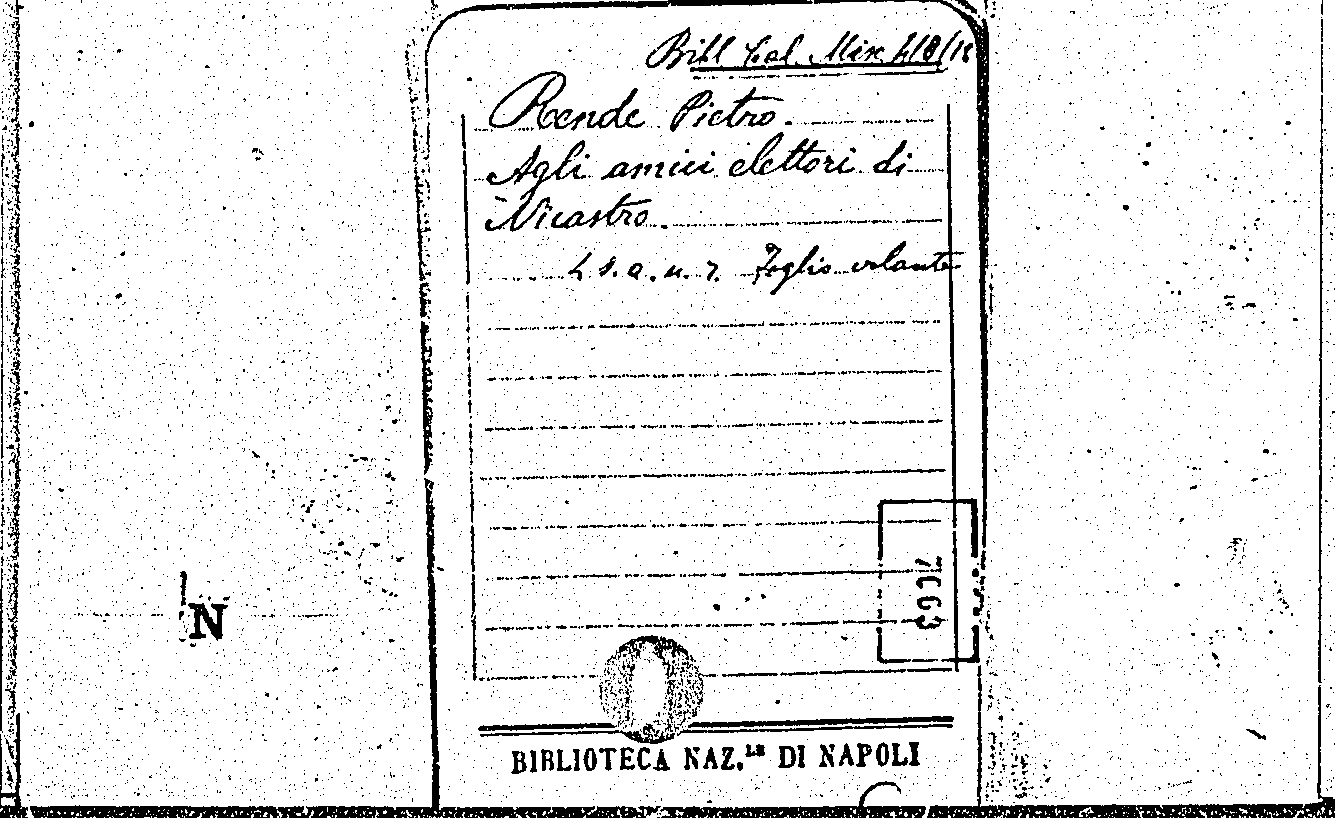 Bibl Cal. Misc 4/8/18
Rende Pietro.
Agli amici elettori di
Nicastro.
s. a. n. Foglio volante
7063
N
BIBLIOTECA NAZ.LE DI NAPOLI